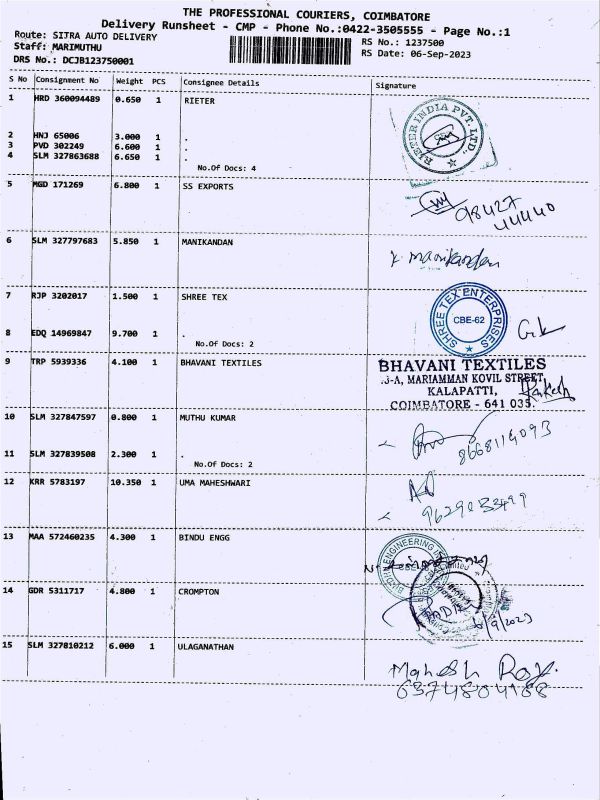 THE PROFESSIONAL COURIERS, COIMBATORE
Delivery Runsheet - CMP - Phone No.:0422-3505555 - Page No.:1
Route: SITRA AUTO DELIVERY RS No.: 1237500
Staff: MARIMUTHU RS Date: 06-Sep-2023
DRS No.: DCJB123750001
S No Consignment No Weight PCS Consignee Details Signature
1 HRD 360094489 0.650 1 RIETER
RIETER INDIA PVT. LTD.,
2 HNJ 65006 3.000 1 .
3 PVD 302249 6.600 1 .
4 SLM 327863688 6.650 1 .
No.Of Docs: 4
5 MGD 171269 6.800 1 SS EXPORTS
98427
44440
6 SLM 327797683 5.850 1 MANIKANDAN
Manikandan
7 RJP 3202017 1.500 1 SHREE TEX
SHREE TEX ENTERPRISES
CBE-62
8 EDQ 14969847 9.700 1 .
No.Of Docs: 2
9 TRP 5939336 4.100 1 BHAVANI TEXTILES
BHAVANI TEXTILES
MARIAMMAN KOVIL STREET,
KALAPATTI,
COIMBATORE - 641 035.
10 SLM 327847597 0.800 1 MUTHU KUMAR
8668114093
11 SLM 327839508 2.300 1 .
No.Of Docs: 2
12 KRR 5783197 10.350 1 UMA MAHESHWARI
13 MAA 572460235 4.300 1 BINDU ENGG
14 GDR 5311717 4.800 1 CROMPTON
6/9/2023
15 SLM 327810212 6.000 1 ULAGANATHAN
Mahesh Raja.
6374804188